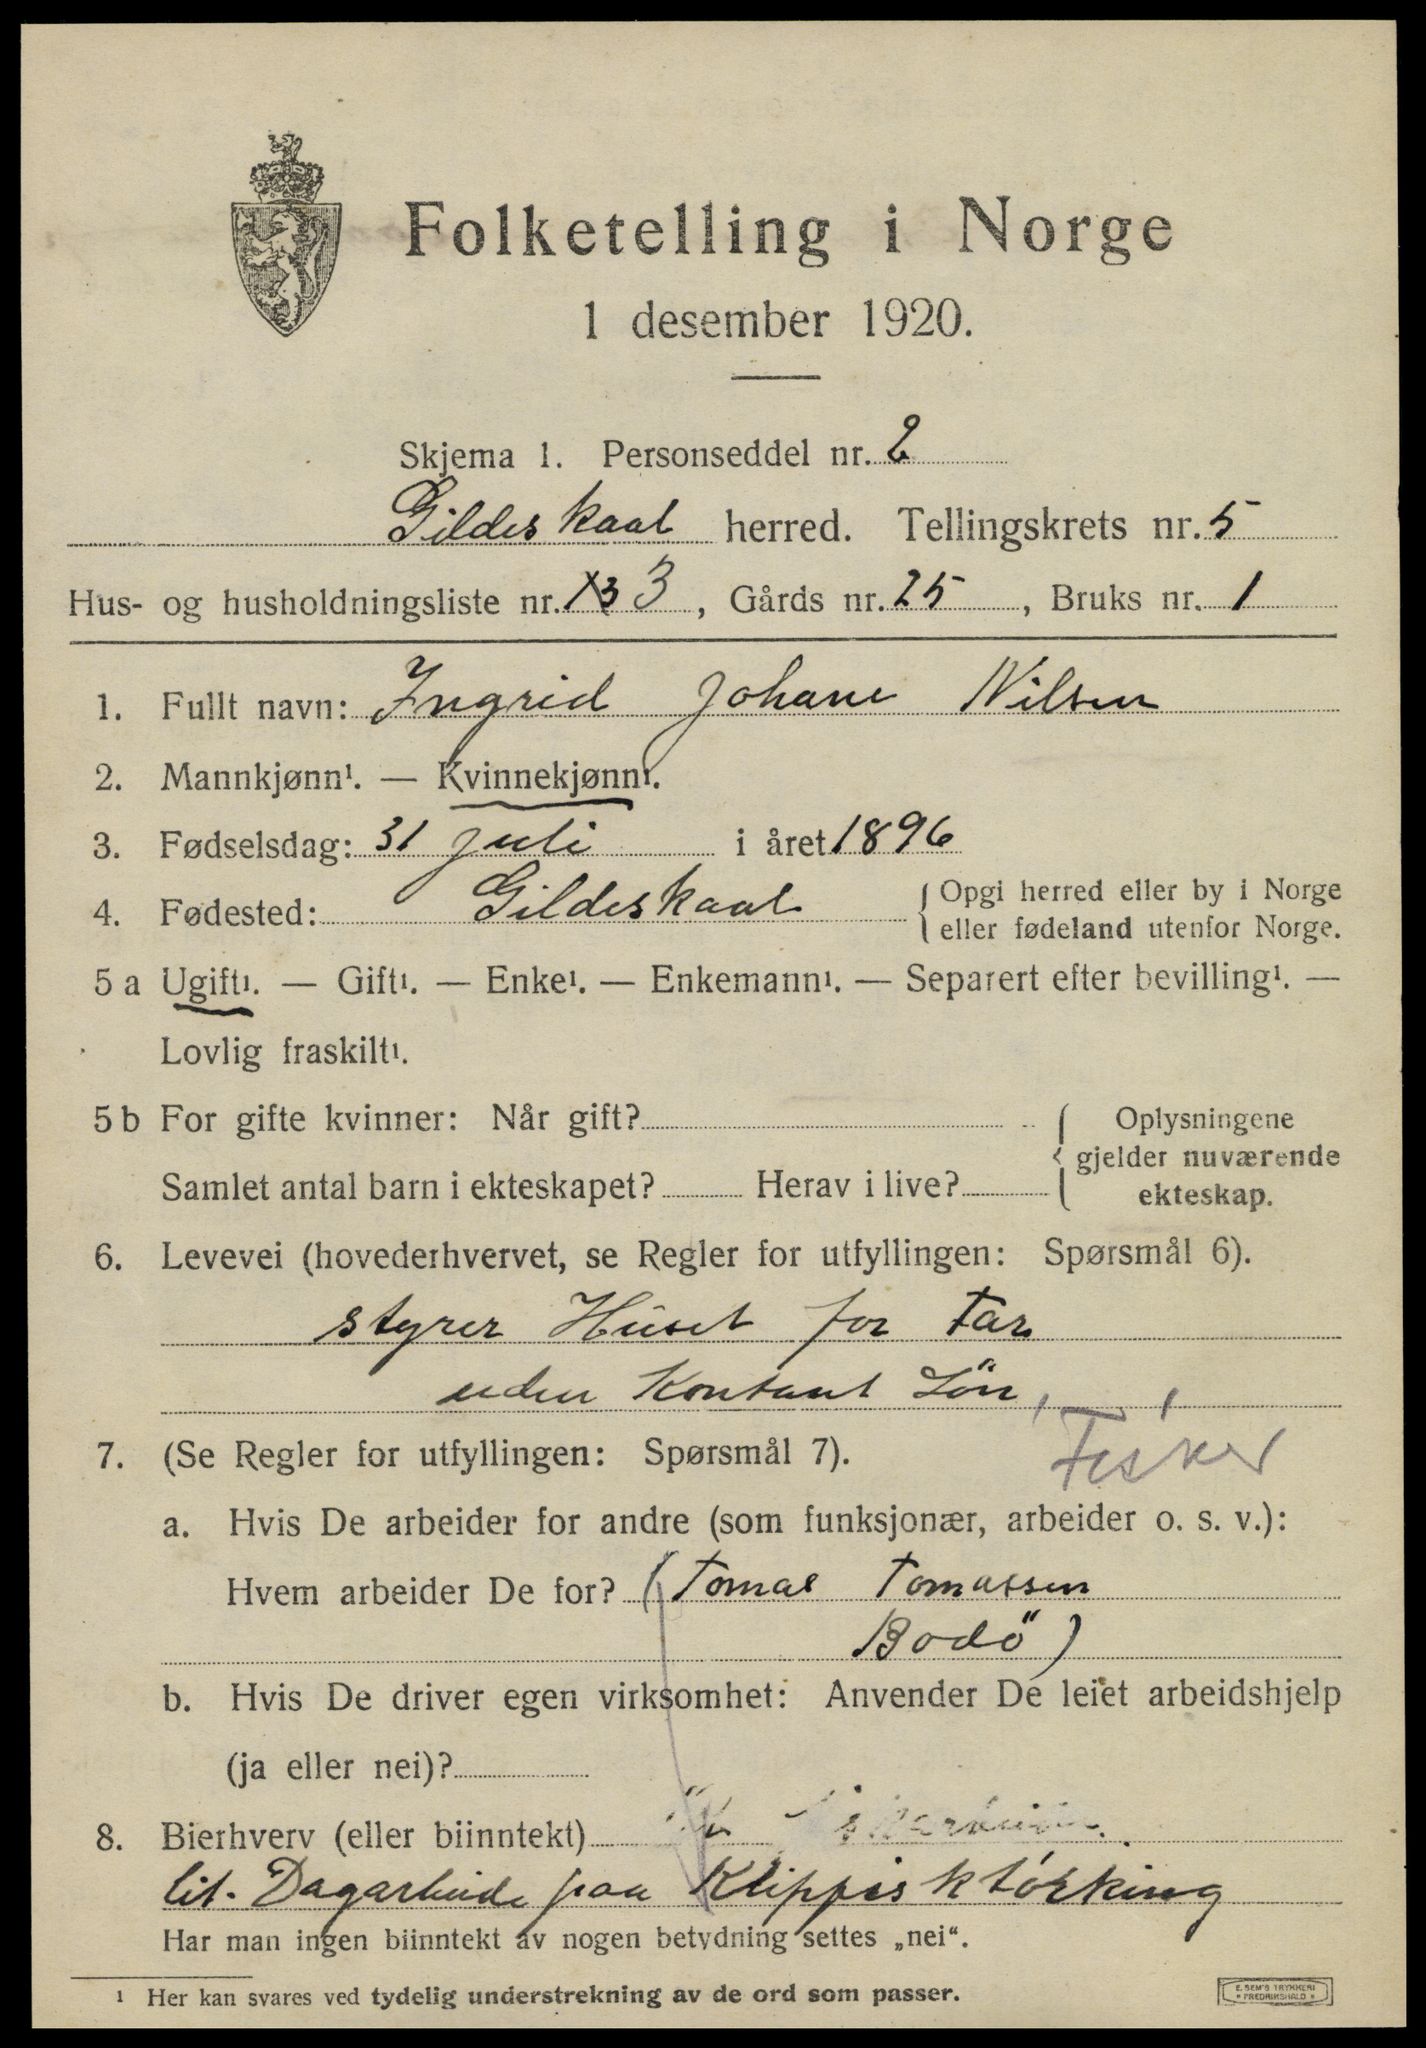 Folketelling i Norge
1 desember 1920.
Skjema 1. Personseddel nr. 2
Gildeskaal herred. Tellingskrets nr. 5
Hus- og husholdningsliste nr. 3, Gårds nr. 25, Bruks nr. 1
1. Fullt navn: Ingrid Johane Nilsen
2. Mannkjønn¹. — Kvinnekjønn¹.
3. Fødselsdag: 31 juli i året 1896
4. Fødested: Gildeskaal
Opgi herred eller by i Norge
eller fødeland utenfor Norge.
5 a Ugift¹. — Gift¹. — Enke¹. — Enkemann¹. — Separert efter bevilling¹. —
Lovlig fraskilt¹.
5 b For gifte kvinner: Når gift?
Samlet antal barn i ekteskapet? Herav i live?
Oplysningene
gjelder nuværende
ekteskap.
6. Levevei (hovederhvervet, se Regler for utfyllingen: Spørsmål 6).
styrer Huset for Far
uden Kontant Lön,
Fisker
7. (Se Regler for utfyllingen: Spørsmål 7).
a. Hvis De arbeider for andre (som funksjonær, arbeider o. s. v.):
Hvem arbeider De for? (Tomas Tomassen
Bodö)
b. Hvis De driver egen virksomhet: Anvender De leiet arbeidshjelp
(ja eller nei)?
8. Bierhverv (eller biinntekt)
lit. Dagarbeide paa Klippfisktörking
Har man ingen biinntekt av nogen betydning settes „nei“.
¹ Her kan svares ved tydelig understrekning av de ord som passer.
E. SEM'S TRYKKERI
FREDRIKSHALD